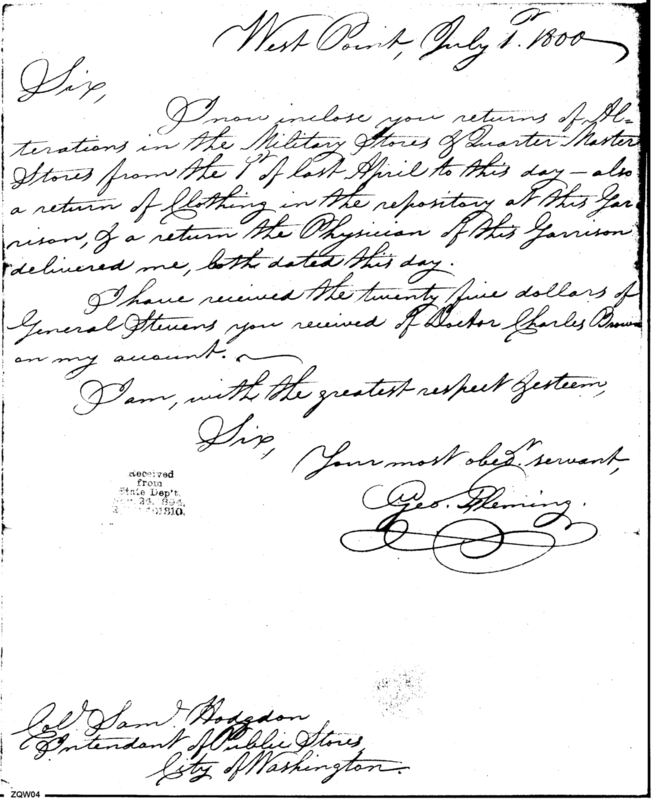 West Point, July 1st. 1800
Sir,
I now inclose you returns of Al-
terations in the Military Stores & Quarter Master
Stores from the 1st of last April to this day — also
a return of Clothing in the repository at this Gar-
rison, & a return the Physician of this Garrison
delivered me, both dated this day.
I have received the twenty five dollars of
General Stevens you received of Doctor Charles Brown
on my account.
I am, with the greatest respect & esteem,
Sir,
Your most obedt. servant,
Geo. Fleming.
Received
from
State Dep't.
24, 1894.
1810.
Colo. Saml. Hodgdon
Intendant of Public Stores,
City of Washington.
ZQW04